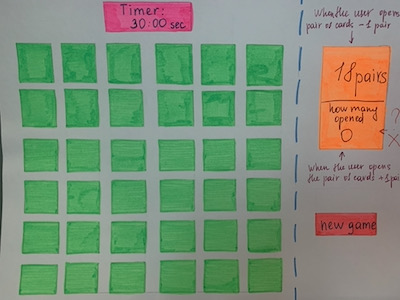 Timer:
30:00 sec
When the user opens
pair of cards - 1 pair
18 pairs
how many
opened
0
?
X
When the user opens
the pair of cards +1 pa
new game